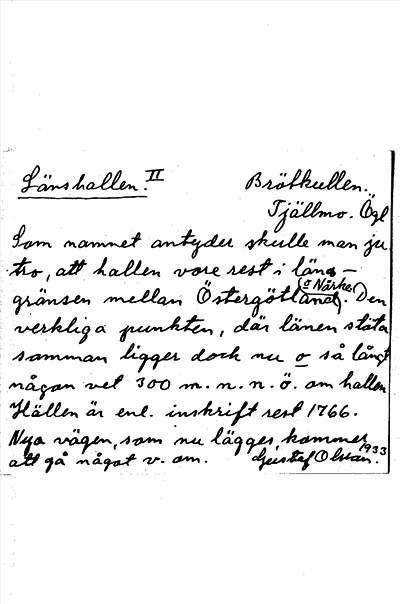 Länshallen. II
Brötkullen.
Tjällmo. Ögl
Som namnet antyder skulle man ju
tro, att hallen vore rest i läns-
gränsen mellan Östergötland (o Närke). Den
verkliga punkten, där länen stöta
samman ligger dock nu o så långt
någon vet 300 m. n. n. ö. om hallen
Hällen är enl. inskrift rest 1766.
Nya vägen, som nu lägges, kommer
att gå något v. om. Gustaf Olsson. 1933